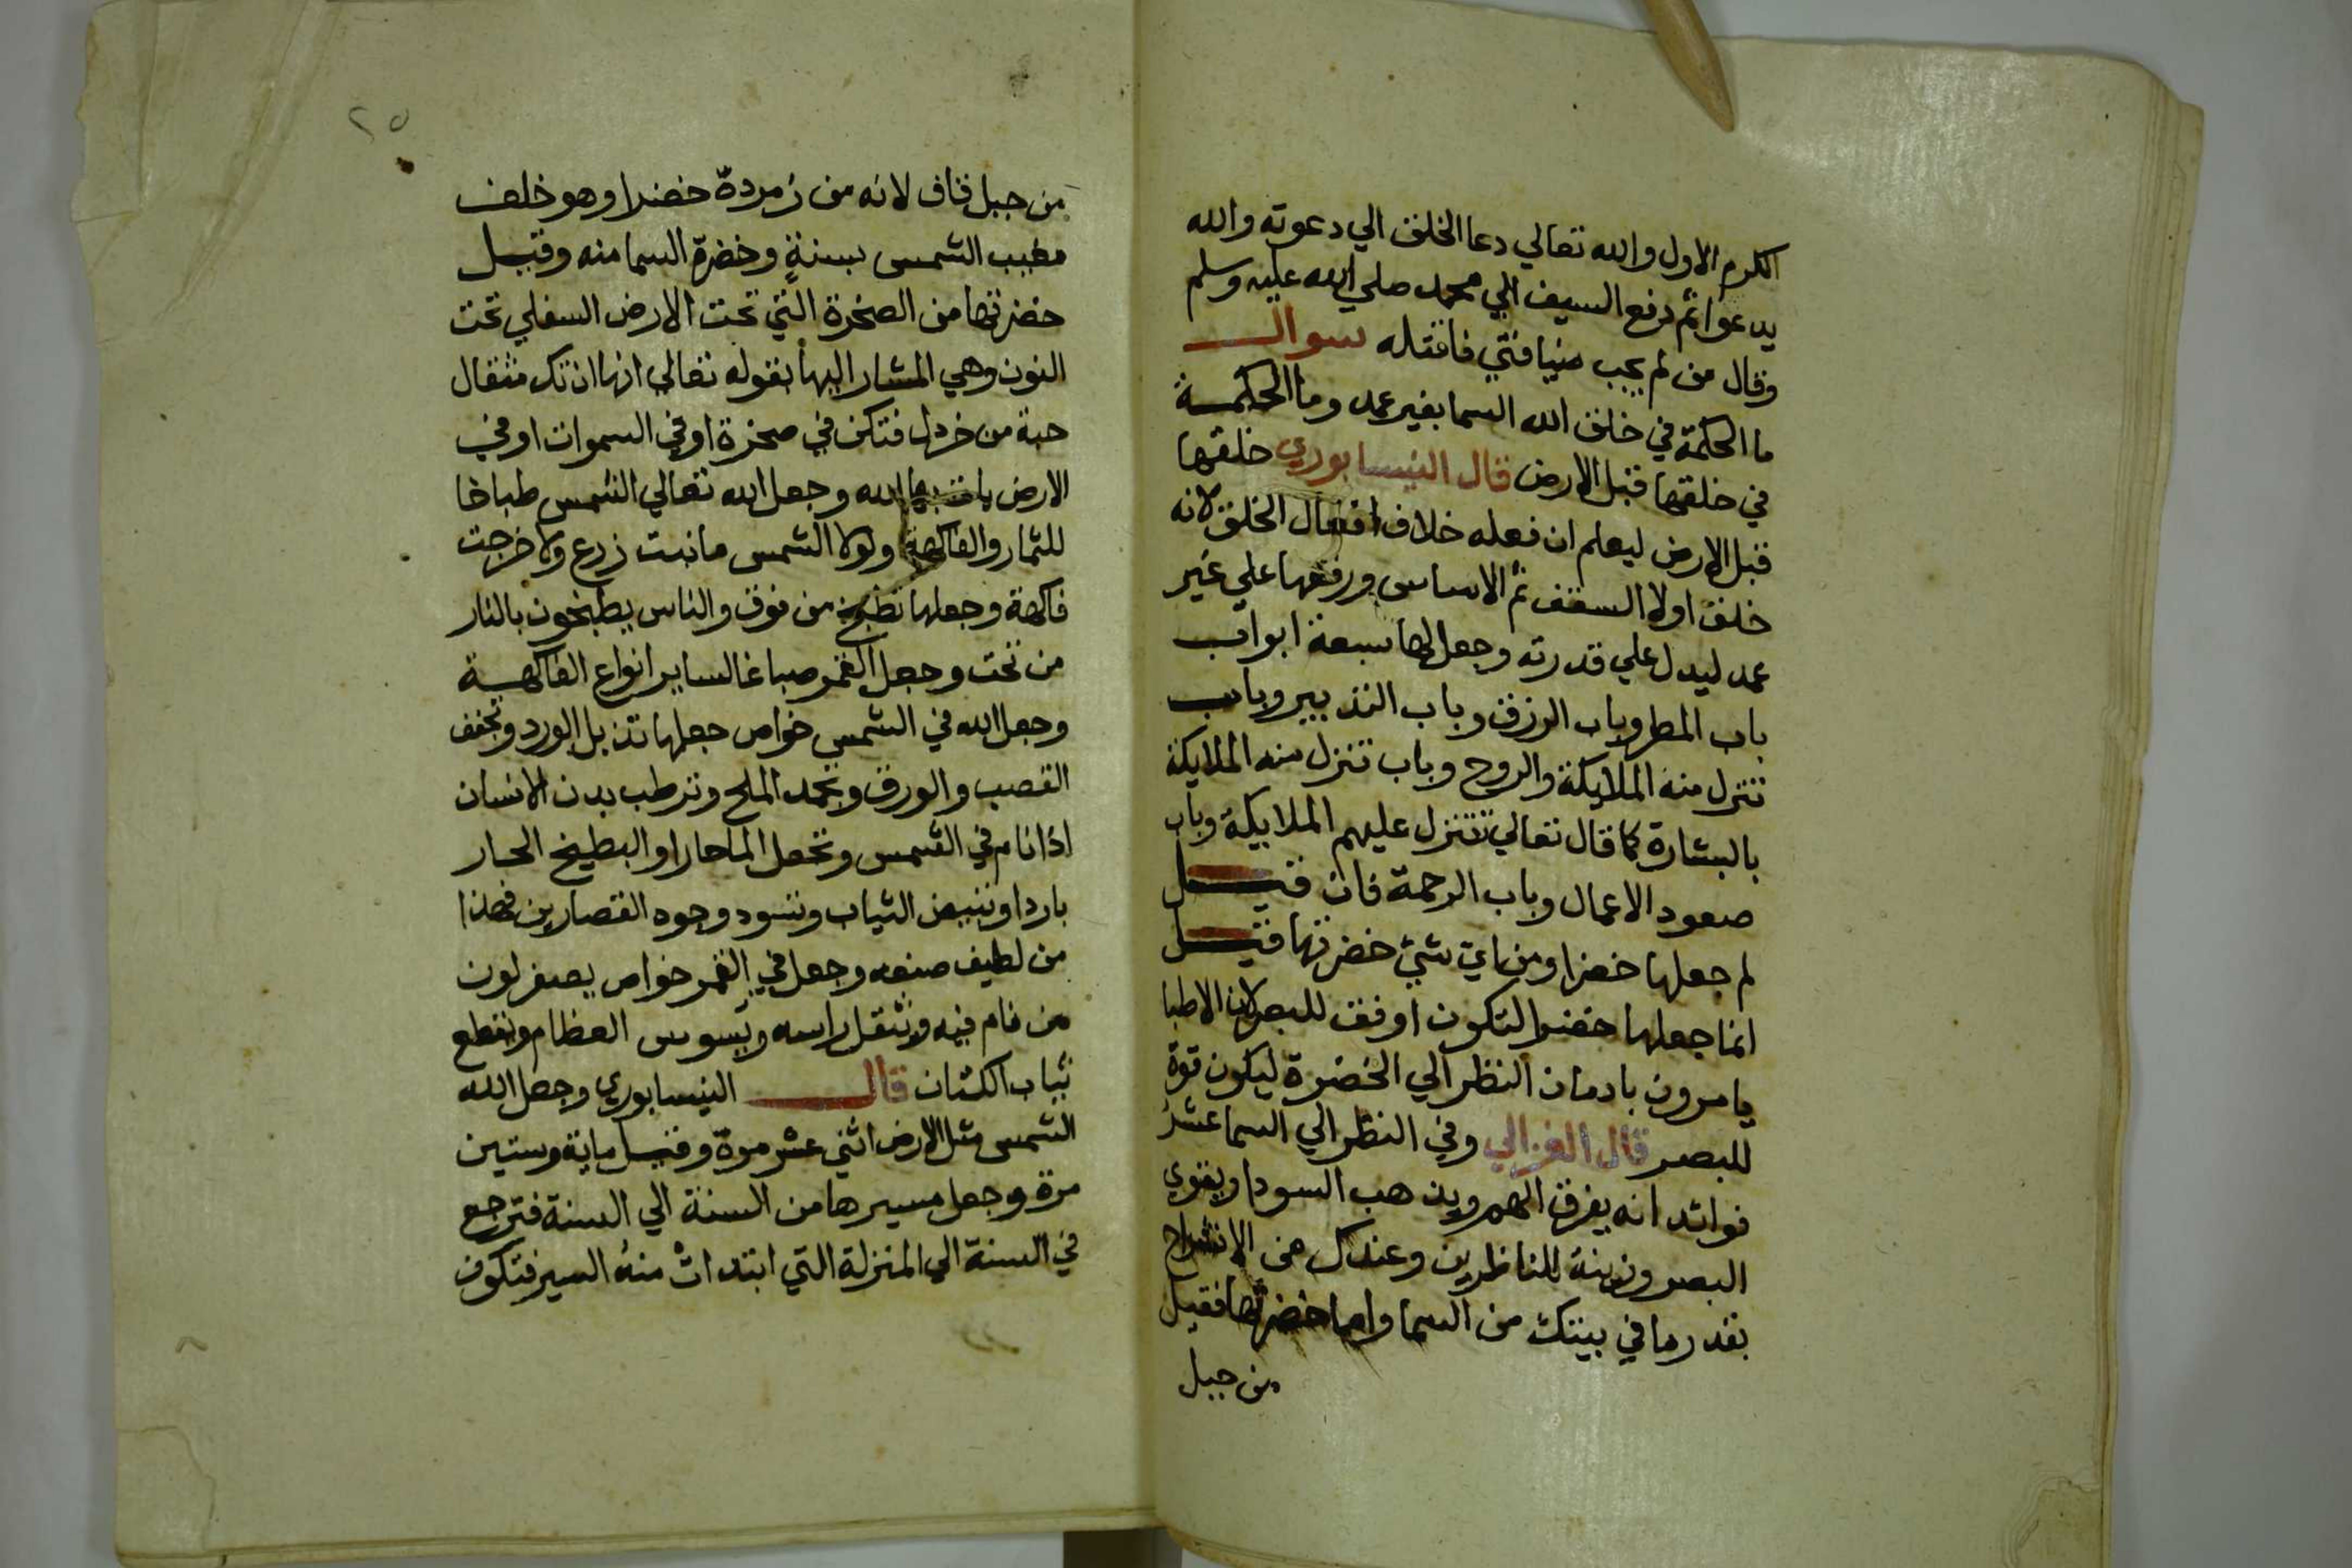 الكرم الاول والله تعالي دعا الخلق الي دعوته والله
يدعوا ثم دفع السيف الي محمد صلي الله عليه وسلم
وقال من لم يجب ضيافتي فاقتله سوال
ما الحكمة في خلق الله السما بغير عمد وما الحكمة
في خلقها قبل الارض قال النيسابوري خلقها
قبل الارض ليعلم ان فعله خلاف افعال الخلق لانه
خلق اولا السقف ثم الاساس ورفعها علي غير
عمد ليدل علي قدرته وجعل لها سبعة ابواب
باب المطر وباب الرزق وباب التدبير وباب
تنزل منه الملايكة والروح وباب تنزل منه الملايكة
بالبشارة كما قال تعالي تتنزل عليهم الملايكة وباب
صعود الاعمال وباب الرحمة فان قيل
لم جعلها خضرا ومن اي شي خضرتها قيل
انما جعلها خضرا لتكون اوفق للبصر لان الاطبا
يامرون بادمان النظر الي الخضرة ليكون قوة
للبصر قال الغزالي وفي النظر الي السما عشر
فوائد انه يفرق الهم ويذهب السودا ويقوي
البصر وزينة للناظرين وعندك من الانشراح
بقدر ما في بيتك من السما واما خضرتها فقيل
من جبل
٢٥
من جبل قاف لانه من زمردة خضرا وهو خلف
مغيب الشمس بسنة وخضرة السما منه وقيل
خضرتها من الصخرة التي تحت الارض السفلي تحت
النون وهي المشار اليها بقوله تعالي انها ان تك مثقال
حبة من خردل فتكن في صخرة او في السموات او في
الارض يات بها الله وجعل الله تعالي الشمس طباخا
للثمار والفاكهة ولولا الشمس ما نبت زرع ولا خرجت
فاكهة وجعلها تطبخ من فوق والناس يطبخون بالنار
من تحت وجعل القمر صباغا لساير انواع الفاكهة
وجعل الله في الشمس خواص جعلها تذبل الورد وتجفف
القصب والورق وتجمد الملح وترطب بدن الانسان
اذا نام في الشمس وتجعل الما حارا والبطيخ الحار
باردا وتبيض الثياب وتسود وجوه القصارين فهذا
من لطيف صنعه وجعل في القمر خواص يصفر لون
من نام فيه ويثقل راسه ويسوس العظام ويقطع
ثياب الكتان قال النيسابوري وجعل الله
الشمس مثل الارض اثني عشر مرة وقيل ماية وستين
مرة وجعل مسيرها من السنة الي السنة فترجع
في السنة الي المنزلة التي ابتدات منه السير فتكون